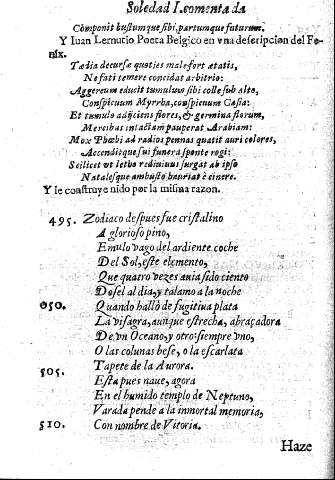 Soledad I.comenta da
Componit bustumque sibi, partumque futurum.
Y Iuan Lernutio Poeta Belgico en vna descripcion del Fe-
nix.
Tædia decursæ quoties male fert ætatis,
Ne fati temere concidat arbitrio:
Aggereum educit tumulum sibi colle sub alto,
Conspicuum Myrrha, conspicuum Casia:
Et tumulo adijciens flores, & germina florum,
Mercibus intactam pauperat Arabiam:
Mox Phœbi ad radios pennas quatit auri colores,
Accenditque sui funera sponte rogi:
Scilicet vt letho rediuiuus surgat ab ipso
Natalesque ambusto hauriat è cinere.
Y le construye nido por la misma razon.
495. Zodiaco despues fue cristalino
A glorioso pino,
Emulo vago del ardiente coche
Del Sol, este elemento,
Que quatro vezes auia sido ciento
Dosel al dia, y talamo a la noche
050. Quando hallò de fugitiua plata
La visagra, aunque estrecha, abraçadora
De vn Oceano, y otro siempre vno,
O las colunas bese, o la escarlata
505. Tapete de la Aurora.
Esta pues naue, agora
En el humido templo de Neptuno,
Varada pende a la inmortal memoria,
510. Con nombre de Vitoria.
Haze